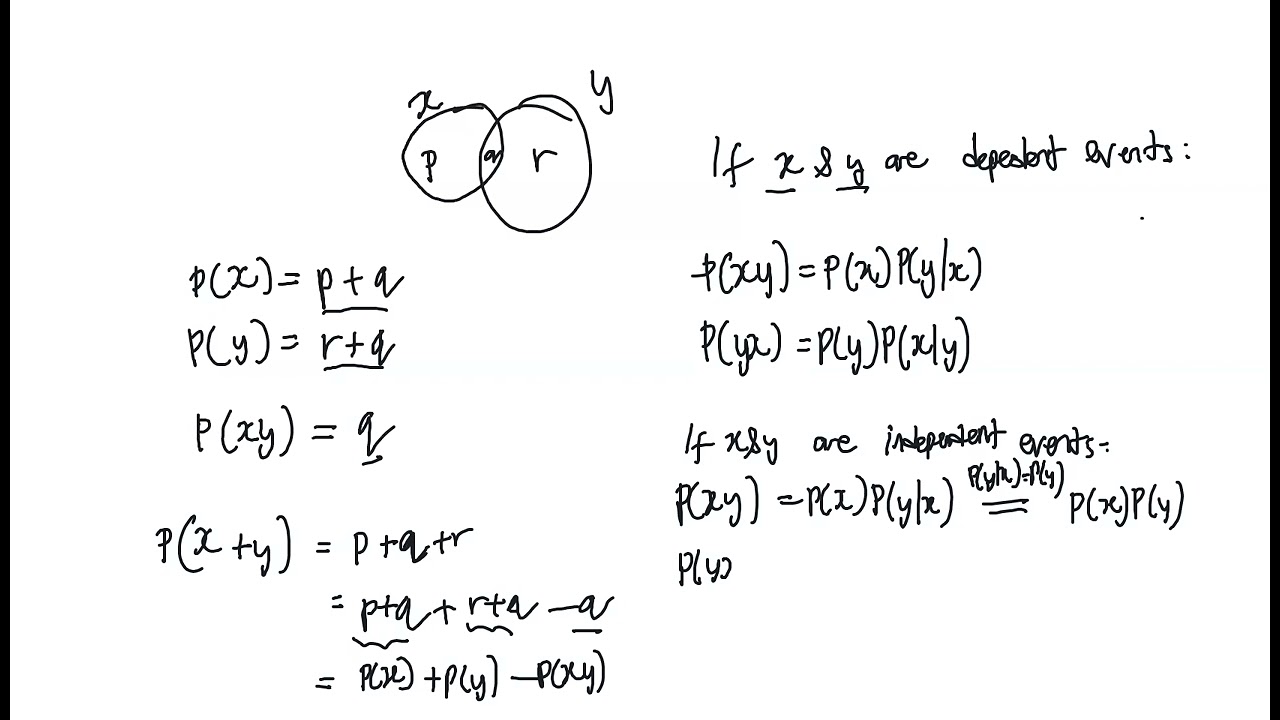 x
y
p
q
r
P(x) = p + q
P(y) = r+q
P(xy) = q
P(x+y) = p+q+r
= p+q + r+q - q
= P(x) + P(y) - P(xy)
If x & y are depedent events:
P(xy) = P(x) P(y|x)
P(yx) = P(y) P(x|y)
If x & y are independent events:-
P(y|x)=P(y)
P(xy) = P(x) P(y|x) = P(x) P(y)
P(yx